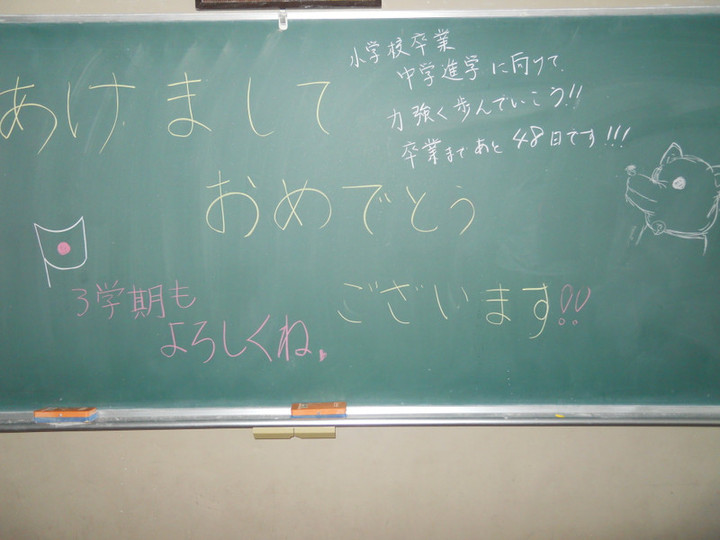 あけまして
おめでとう
ございます!!
小学校卒業
中学進学に向けて、
力強く歩んでいこう!!
卒業まであと48日です!!!
3学期も
よろしくね。